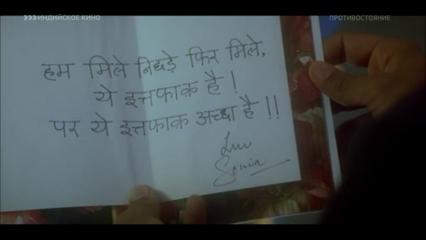 ИНДИЙСКОЕ КИНО
ПРОТИВОСТОЯНИЕ
हम मिले बिछड़े फिर मिले,
ये इत्तफाक़ है !
पर ये इत्तफाक़ अच्छा है !!
Luv
Sonia